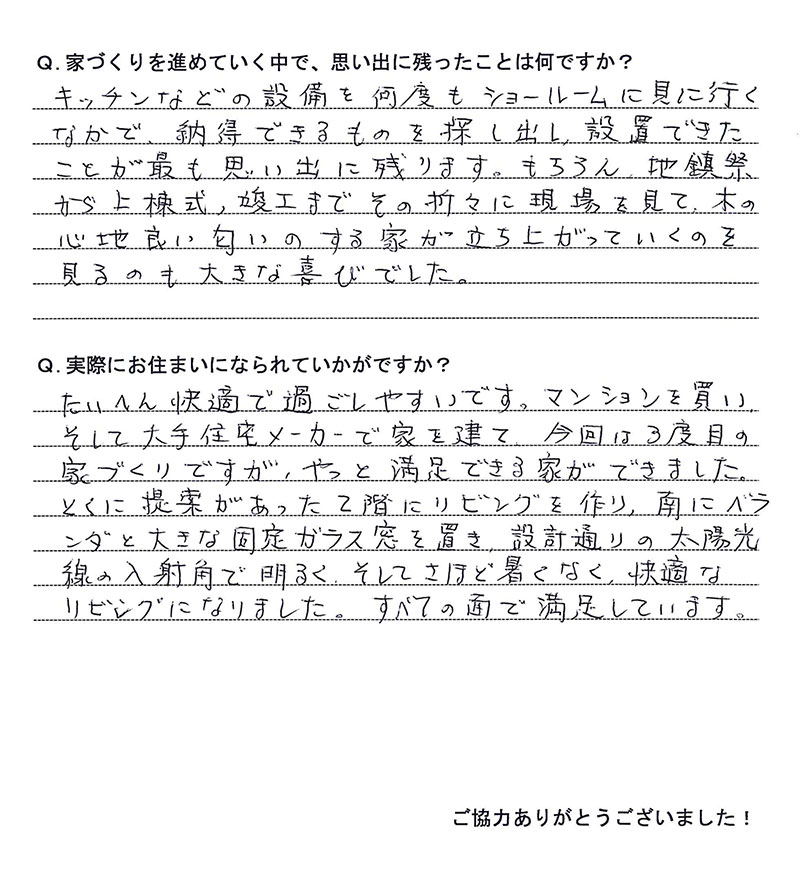 Q. 家づくりを進めていく中で、思い出に残ったことは何ですか？
キッチンなどの設備を何度もショールームに見に行く
なかで、納得できるものを探し出し、設置できた
ことが最も思い出に残ります。もちろん、地鎮祭
から上棟式、竣工までその折々に現場を見て、木の
心地良い匂いのする家が立ち上がっていくのを
見るのも大きな喜びでした。
Q. 実際にお住まいになられていかがですか？
たいへん快適で過ごしやすいです。マンションを買い、
そして大手住宅メーカーで家を建て、今回は3度目の
家づくりですが、やっと満足できる家ができました。
とくに提案があった2階にリビングを作り、南にベラ
ンダと大きな固定ガラス窓を置き、設計通りの太陽光
線の入射角で明るく、そしてさほど暑くなく、快適な
リビングになりました。すべての面で満足しています。
ご協力ありがとうございました！